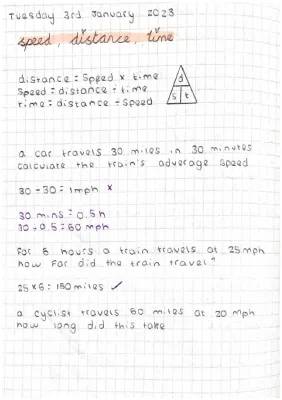 Tuesday 3rd January 2023
speed, distance, time
distance = Speed x time
Speed = distance ÷ time
time = distance ÷ Speed
d
s t
a car travels 30 miles in 30 minutes
calculate the train's adverage speed
30 ÷ 30 = 1mph x
30 mins = 0.5h
30 ÷ 0.5 = 60 mph
For 6 hours a train travels at 25mph
how far did the train travel?
25 x 6 = 150 miles ✓
a cyclist travels 60 miles at 20 mph
how long did this take